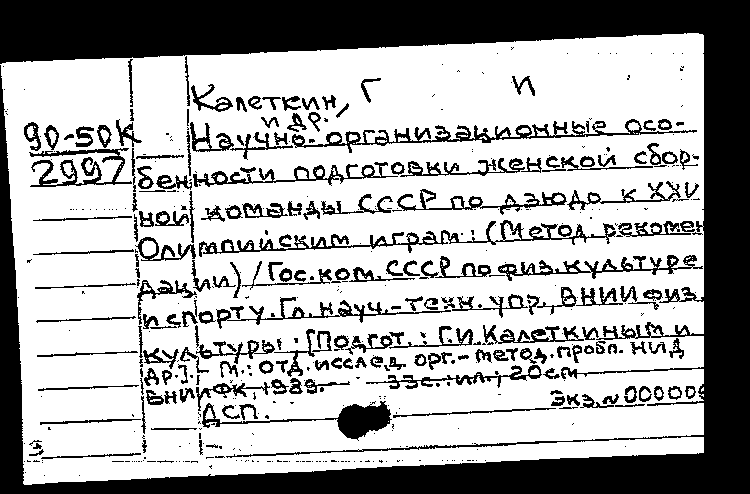 Калеткин, Г И
и др.,
90-50К
2997
Научно-организационные осо-
бенности подготовки женской сбор-
ной команды СССР по дзюдо к XXV
Олимпийским играм: (Метод. рекомен
дации) / Гос. ком. СССР по физ. культуре
и спорту. Гл. науч.-техн. упр., ВНИИ физ.
культуры; [Подгот.: Г.И. Калеткиным и
др.]. - М.: Отд. исслед. орг.-метод. пробл. НИД
ВНИИФК, 1989. - 33с.: ил.; 20см.
ДСП. Экз. № 000006